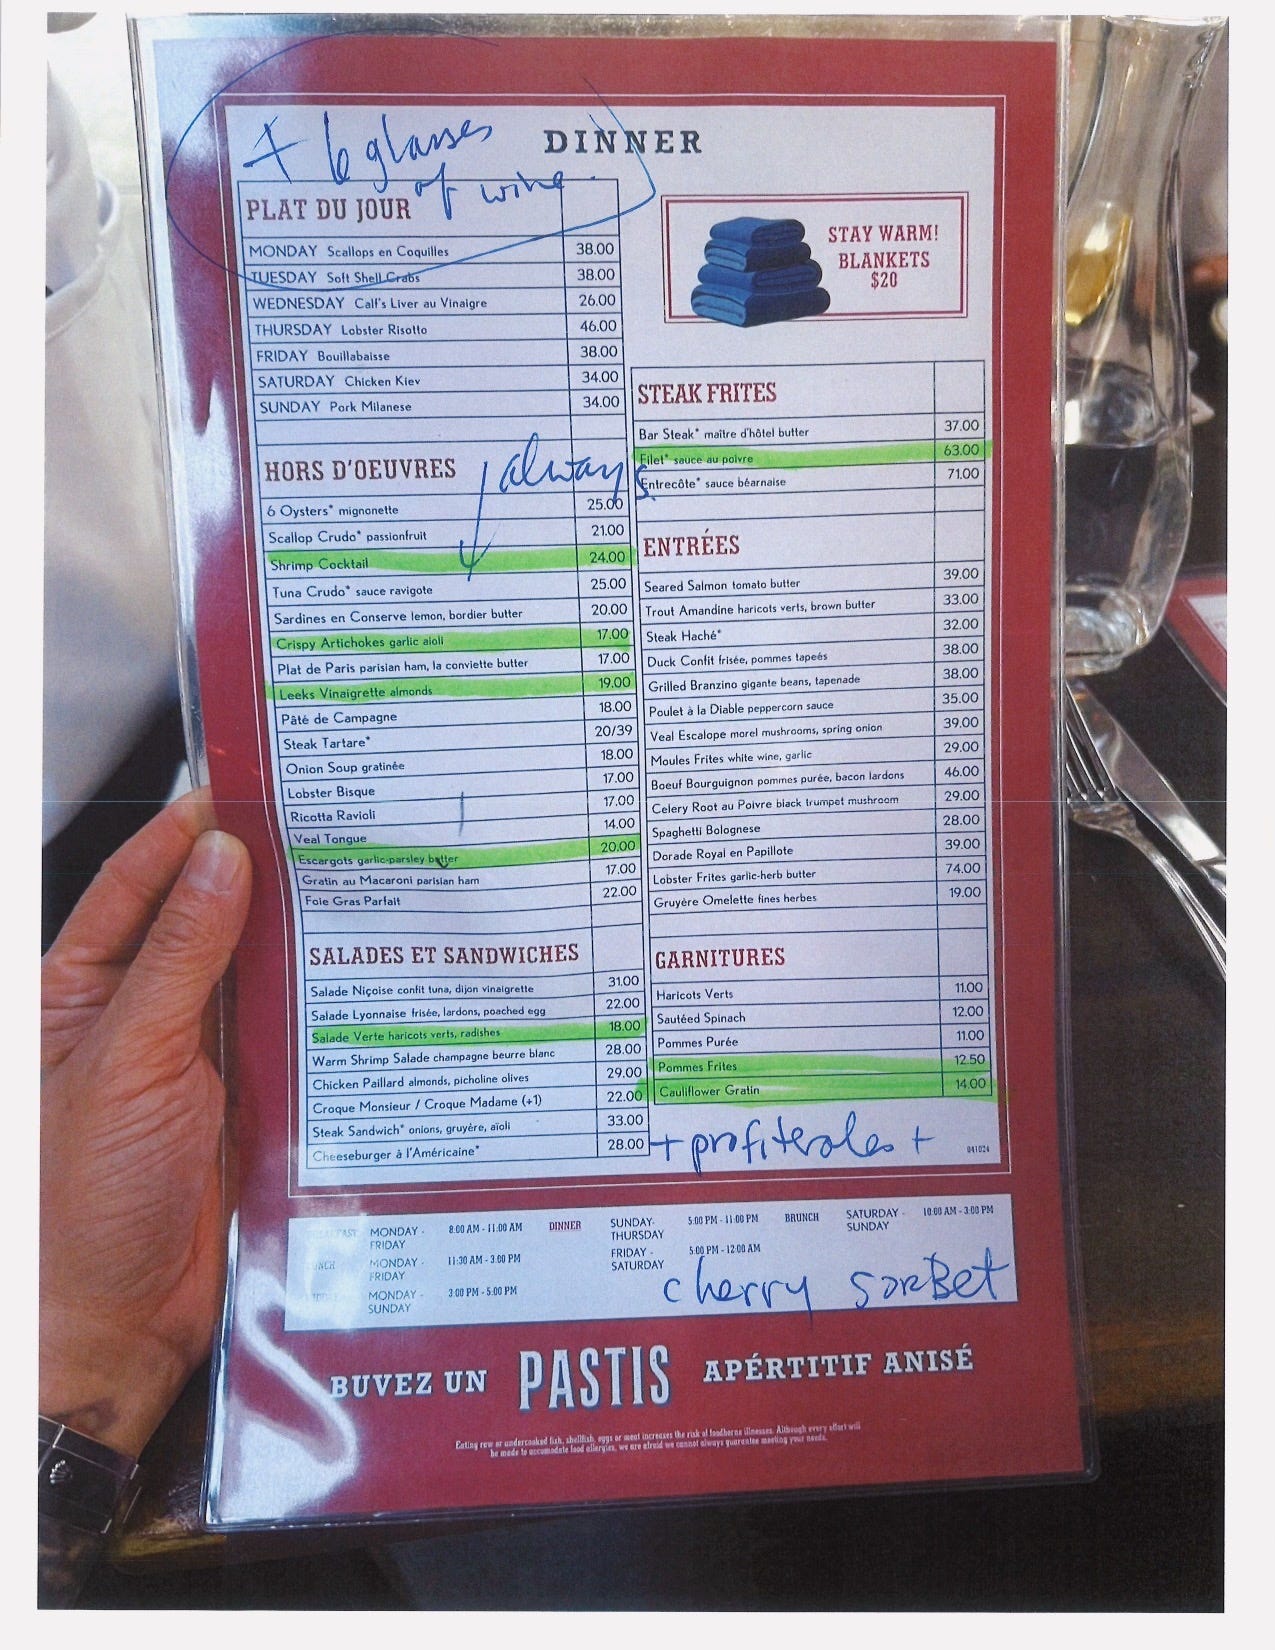 + 6 glasses
of wine.
DINNER
PLAT DU JOUR
MONDAY Scallops en Coquilles 38.00
TUESDAY Soft Shell Crabs 38.00
WEDNESDAY Calf's Liver au Vinaigre 26.00
THURSDAY Lobster Risotto 46.00
FRIDAY Bouillabaisse 38.00
SATURDAY Chicken Kiev 34.00
SUNDAY Pork Milanese 34.00
always
HORS D'OEUVRES
6 Oysters* mignonette 25.00
Scallop Crudo* passionfruit 21.00
Shrimp Cocktail 24.00
Tuna Crudo* sauce ravigote 25.00
Sardines en Conserve lemon, bordier butter 20.00
Crispy Artichokes garlic aioli 17.00
Plat de Paris parisian ham, la conviette butter 17.00
Leeks Vinaigrette almonds 19.00
Pâté de Campagne 18.00
Steak Tartare* 20/39
Onion Soup gratinée 18.00
Lobster Bisque 17.00
Ricotta Ravioli 17.00
Veal Tongue 14.00
Escargots garlic-parsley butter 20.00
Gratin au Macaroni parisian ham 17.00
Foie Gras Parfait 22.00
SALADES ET SANDWICHES
Salade Niçoise confit tuna, dijon vinaigrette 31.00
Salade Lyonnaise frisée, lardons, poached egg 22.00
Salade Verte haricots verts, radishes 18.00
Warm Shrimp Salade champagne beurre blanc 28.00
Chicken Paillard almonds, picholine olives 29.00
Croque Monsieur / Croque Madame (+1) 22.00
Steak Sandwich* onions, gruyère, aïoli 33.00
Cheeseburger à l'Américaine* 28.00
STAY WARM!
BLANKETS
$20
STEAK FRITES
Bar Steak* maître d'hôtel butter 37.00
Filet* sauce au poivre 63.00
Entrecôte* sauce béarnaise 71.00
ENTRÉES
Seared Salmon tomato butter 39.00
Trout Amandine haricots verts, brown butter 33.00
Steak Haché* 32.00
Duck Confit frisée, pommes tapeés 38.00
Grilled Branzino gigante beans, tapenade 38.00
Poulet à la Diable peppercorn sauce 35.00
Veal Escalope morel mushrooms, spring onion 39.00
Moules Frites white wine, garlic 29.00
Boeuf Bourguignon pommes purée, bacon lardons 46.00
Celery Root au Poivre black trumpet mushroom 29.00
Spaghetti Bolognese 28.00
Dorade Royal en Papillote 39.00
Lobster Frites garlic-herb butter 74.00
Gruyère Omelette fines herbes 19.00
GARNITURES
Haricots Verts 11.00
Sautéed Spinach 12.00
Pommes Purée 11.00
Pommes Frites 12.50
Cauliflower Gratin 14.00
+ profiteroles +
041024
MONDAY - FRIDAY 8:00 AM - 11:00 AM
MONDAY - FRIDAY 11:30 AM - 3:00 PM
MONDAY - SUNDAY 3:00 PM - 5:00 PM
DINNER SUNDAY- THURSDAY 5:00 PM - 11:00 PM
FRIDAY - SATURDAY 5:00 PM - 12:00 AM
BRUNCH SATURDAY - SUNDAY 10:00 AM - 3:00 PM
cherry sorBet
BUVEZ UN PASTIS APÉRTITIF ANISÉ
Eating raw or undercooked fish, shellfish, eggs or meat increases the risk of foodborne illnesses. Although every effort will
be made to accomodate food allergies, we are afraid we cannot always guarantee meeting your needs.